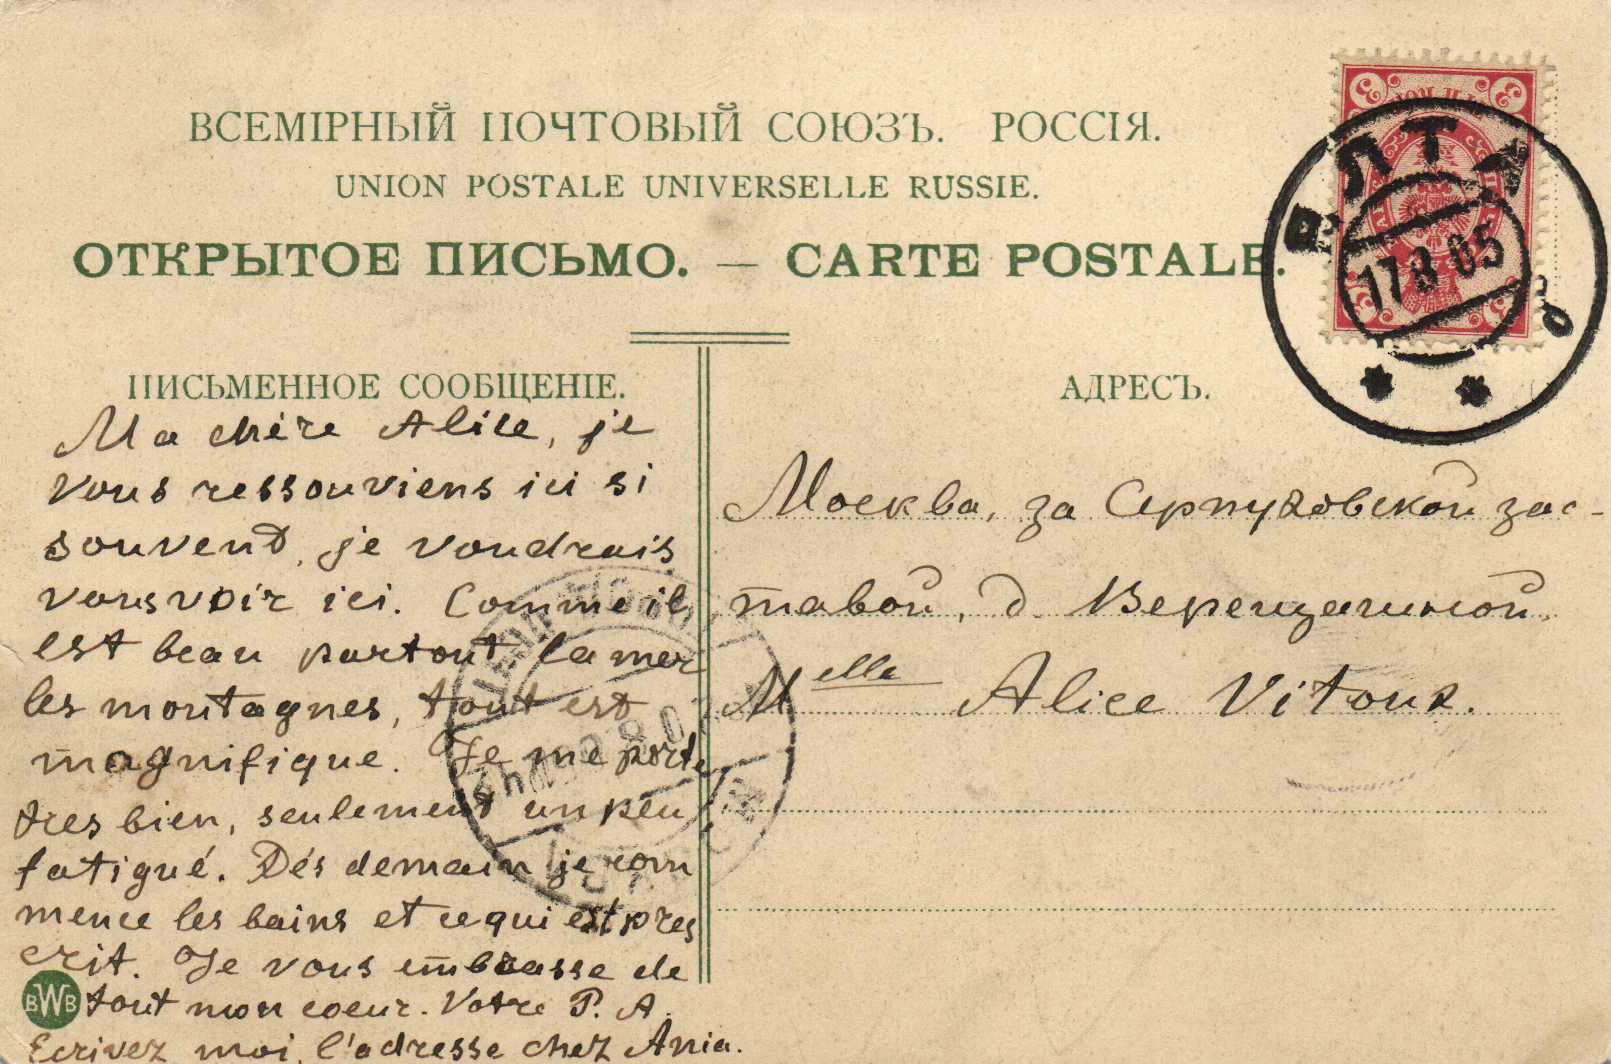 ВСЕМІРНЫЙ ПОЧТОВЫЙ СОЮЗЪ. РОССІЯ.
UNION POSTALE UNIVERSELLE RUSSIE.
ОТКРЫТОЕ ПИСЬМО. — CARTE POSTALE.
ЯЛТА
17 8 05
ПИСЬМЕННОЕ СООБЩЕНІЕ.
Ma chère Alice, je
vous ressouviens ici si
souvent, je voudrais
vous voir ici. Comme il
est beau partout la mer
les montagnes, tout est
magnifique. Je me porte
tres bien, seulement un peu
fatigué. Dés demain je com
mence les bains et ce qui est pres
crit. Je vous embrasse de
tout mon coeur. Votre P. A.
Ecrivez moi, l'adresse chez Ania.
BWB
АДРЕСЪ.
Москва, за Серпуховской зас-
тавой, д. Верещагиной.
Melle Alice Vitoux.